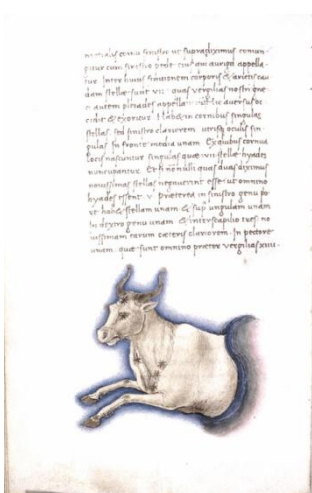 sinistro ut supra diximus coniun
gitur cum sinistro pede eius quem aurigam appella
uere. Inter huius finitionem corporis & arietis cau
dam stellae sunt vii. quas vergilias nostri grae
ci autem pliades appellauerunt. hic aduersus oc
cidit & exoritur. Habet in cornibus singulas
stellas. sed sinistro clariorem utrisq; oculis sin
gulas in fronte media unam. Ex quibus cornua
locis nascuntur singulas quae vii. stellae hyades
nuncupantur. Etsi nonnulli quas duas diximus
nouissimas stellas negauerunt esse ut omnino
hyades essent v. praeterea in sinistro genu
habet stellam unam & supra ungulam unam
In dextro genu unam & inter scapilio tres. no
uissimam earum caeteris clariorem. In pectore
unam. quae sunt omnino praeter vergilias xiiii.